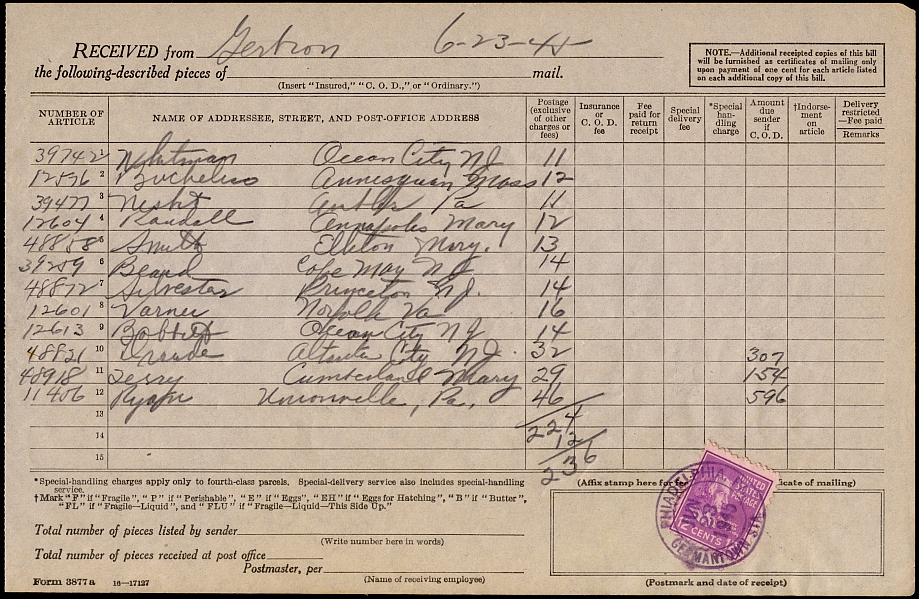 RECEIVED from 6-23-45
the following-described pieces of mail.
(Insert "Insured," "C. O. D.," or "Ordinary.")
NOTE.—Additional receipted copies of this bill
will be furnished as certificates of mailing only
upon payment of one cent for each article listed
on each additional copy of this bill.
NUMBER OF ARTICLE NAME OF ADDRESSEE, STREET, AND POST-OFFICE ADDRESS Postage (exclusive of other charges or fees) Insurance or C. O. D. fee Fee paid for return receipt Special delivery fee *Special handling charge Amount due sender if C. O. D. †Indorsement on article Delivery restricted—Fee paid Remarks
39742 1 Ocean City NJ 11
12596 2 Annisquam Mass 12
39477 3 Nesbit Ambler Pa 11
12604 4 Randall Annapolis Mary 12
48858 5 Smith Elkton Mary. 13
39259 6 Beard Cape May N.J. 14
48872 7 Silvester Princeton N.J. 14
12601 8 Varner Norfolk Va 16
12613 9 Ocean City NJ 14
48821 10 Atlantic City N.J. 32 307
48918 11 Terry Cumberland Mary 29 154
11456 12 Ryan Unionville, Pa, 46 596
13 224
14 12
15 236
*Special-handling charges apply only to fourth-class parcels. Special-delivery service also includes special-handling
service.
†Mark "F" if "Fragile", "P" if "Perishable", "E" if "Eggs", "EH" if "Eggs for Hatching", "B" if "Butter",
"FL" if "Fragile—Liquid", and "FLU" if "Fragile—Liquid—This Side Up."
(Affix stamp here for cate of mailing)
PHILADELPHIA
GERMANTOWN
12 CENTS 12
Total number of pieces listed by sender
(Write number here in words)
Total number of pieces received at post office
Postmaster, per
(Name of receiving employee)
Form 3877a 16—17127
(Postmark and date of receipt)